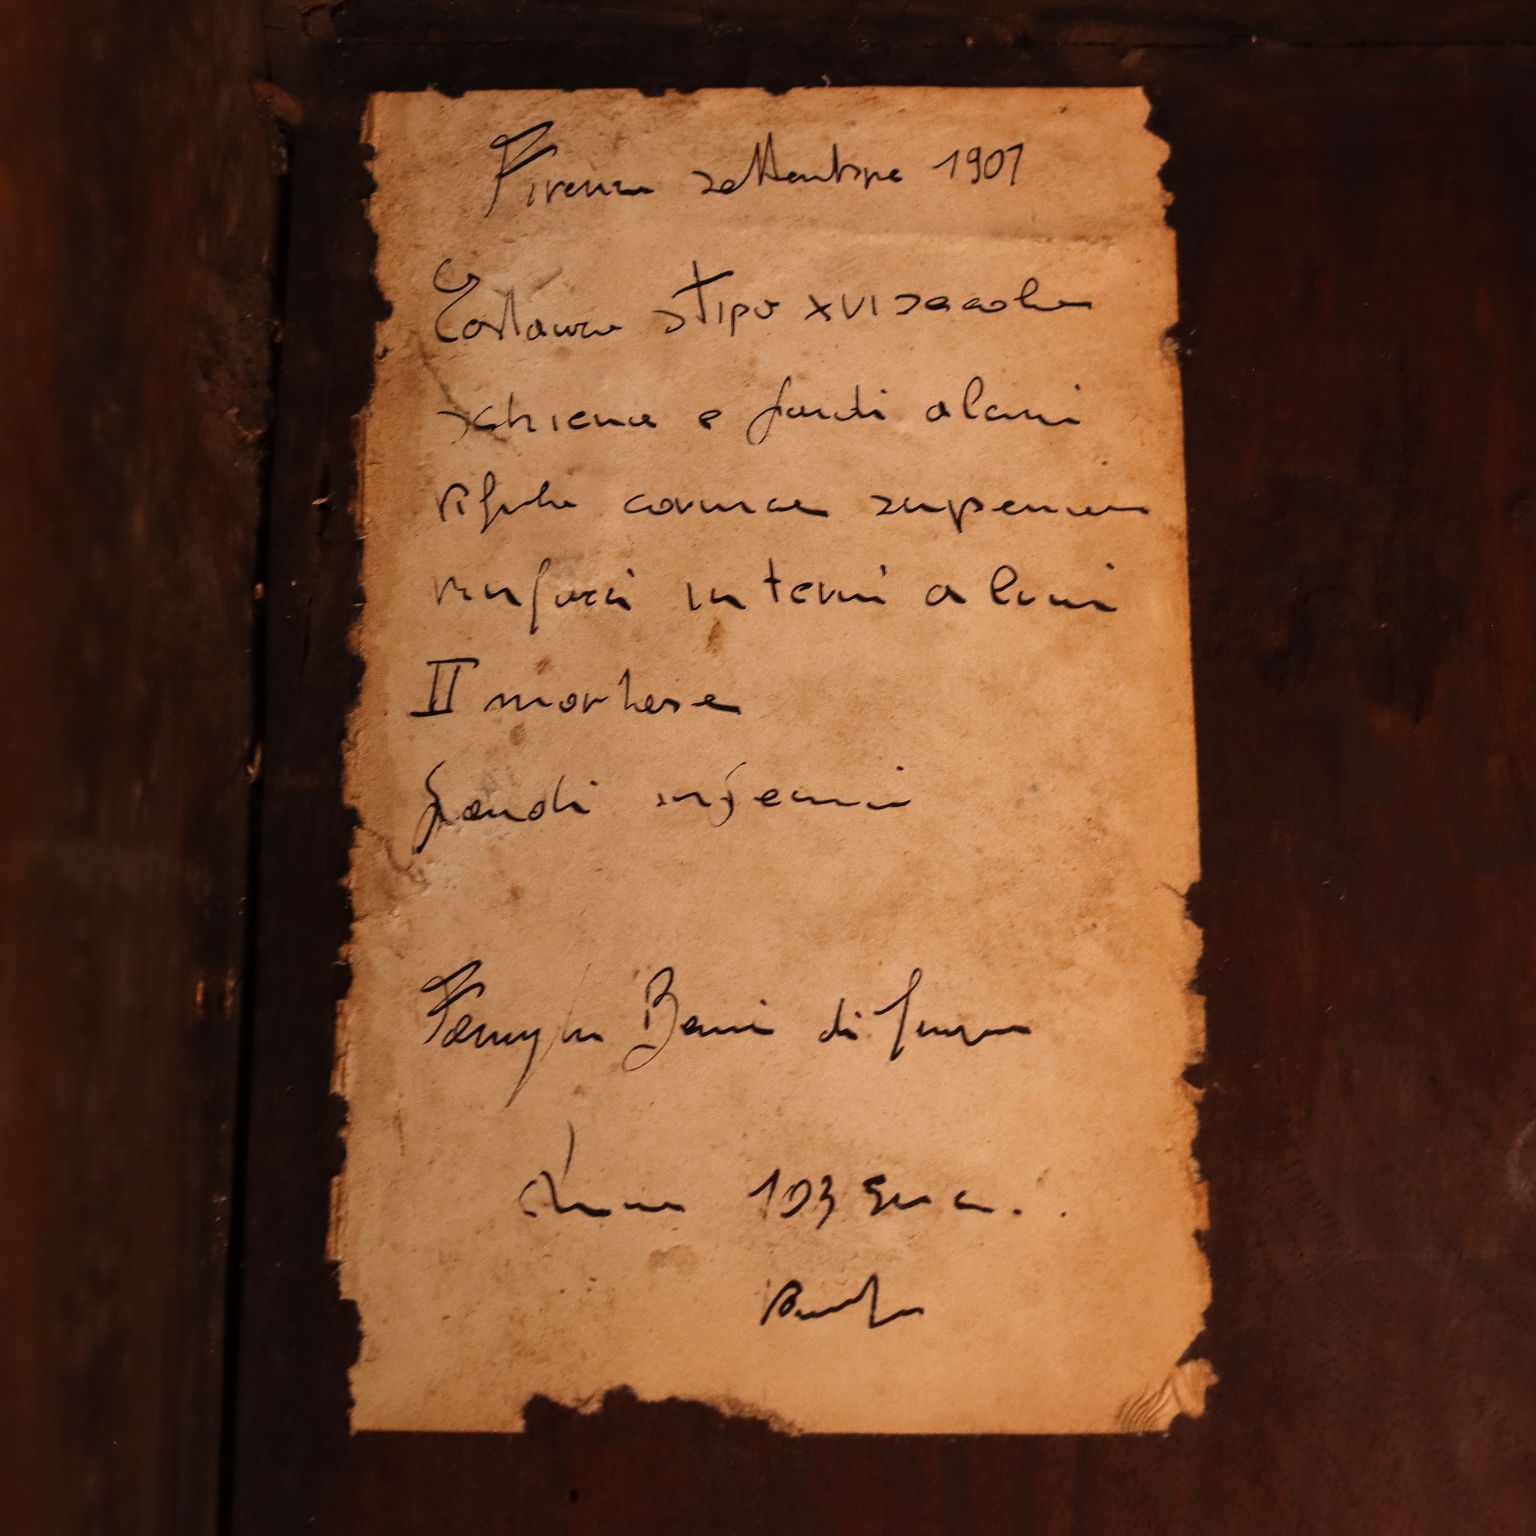 Firenze settembre 1907
Restauro stipo XVI secolo
schiena e fondi alcuni
rifatta cornice superiore
rinforzi interni alcuni
II mortese
fondi inferiori
Famiglia Bani di
103